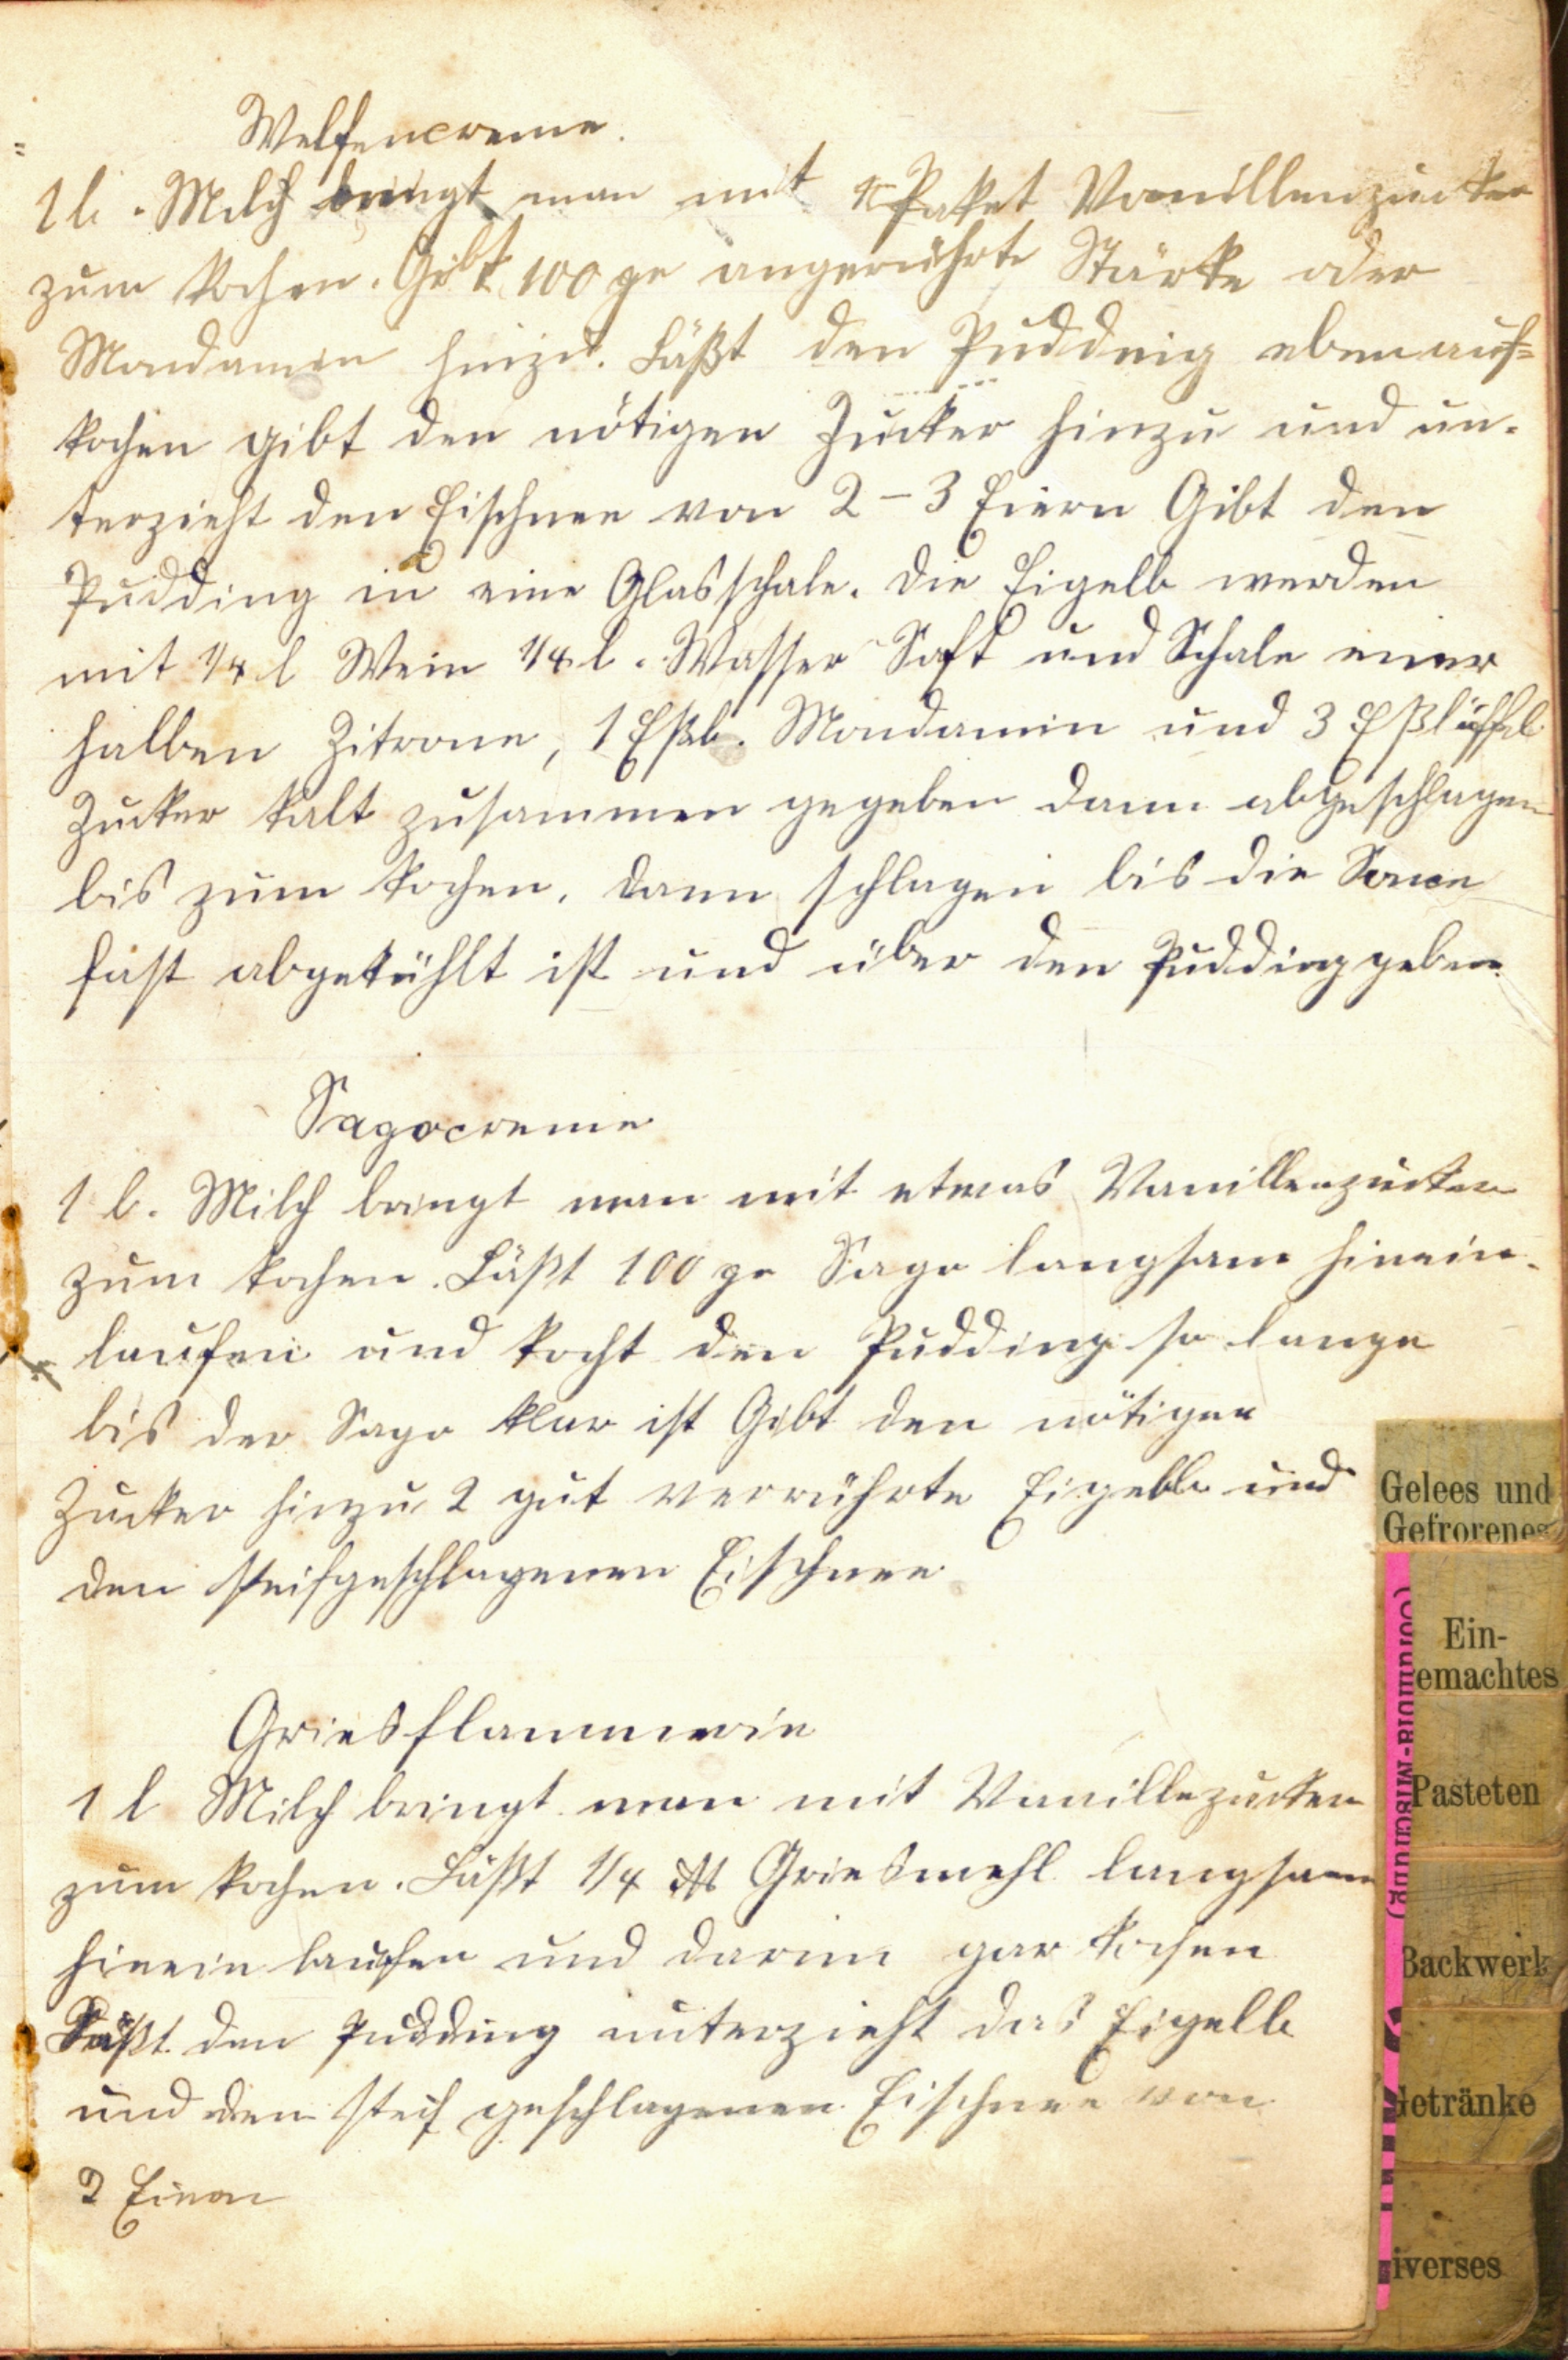 Welfencreme.
1 l. Milch bringt man mit 1 Paket Vanillenzucker
zum kochen. Gibt 100 gr angerührte Stärke oder
Mondamin hinzu. Läßt den Pudding eben auf=
kochen gibt den nötigen Zucker hinzu und un-
terzieht den Eischnee von 2-3 Eiern Gibt den
Pudding in eine Glasschale. Die Eigelb werden
mit 1/4 l Wein 1/4 l. Wasser Saft und Schale einer
halben Zitrone, 1 Eßl. Mondamin und 3 Eßlöffel
Zucker kalt zusammen gegeben dann abgeschlagen
bis zum kochen. dann schlagen bis die Sauce
fast abgekühlt ist und über den Pudding geben.
Sagocreme
1 l. Milch bringt man mit etwas Vanillenzucker
zum kochen. Läßt 100 gr Sago langsam hinein-
laufen und kocht den Pudding so lange
bis der Sago klar ist Gibt den nötigen
Zucker hinzu 2 gut verrührte Eigelb und
den steifgeschlagenen Eischnee
Griesflammerie
1 l Milch bringt man mit Vanillezucker
zum kochen. Läßt 1/4 ℔ Griesmehl langsam
hinein laufen und darin gar kochen
Süßt den Pudding unterzieht das Eigelb
und den steif geschlagenen Eischnee von
2 Eiern
Gelees und
Gefrorenes
Ein-
emachtes
Pasteten
Backwerk
Getränke
iverses